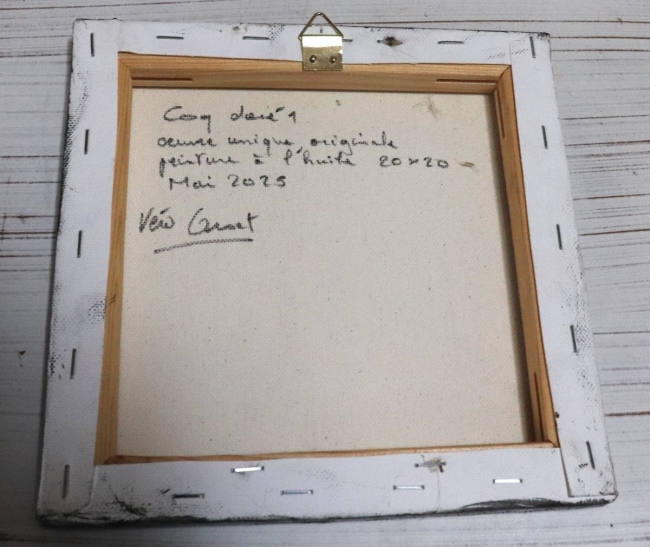 Coq doré 1
oeuvre unique originale
peinture à l'huile 20x20
Mai 2025
Véro